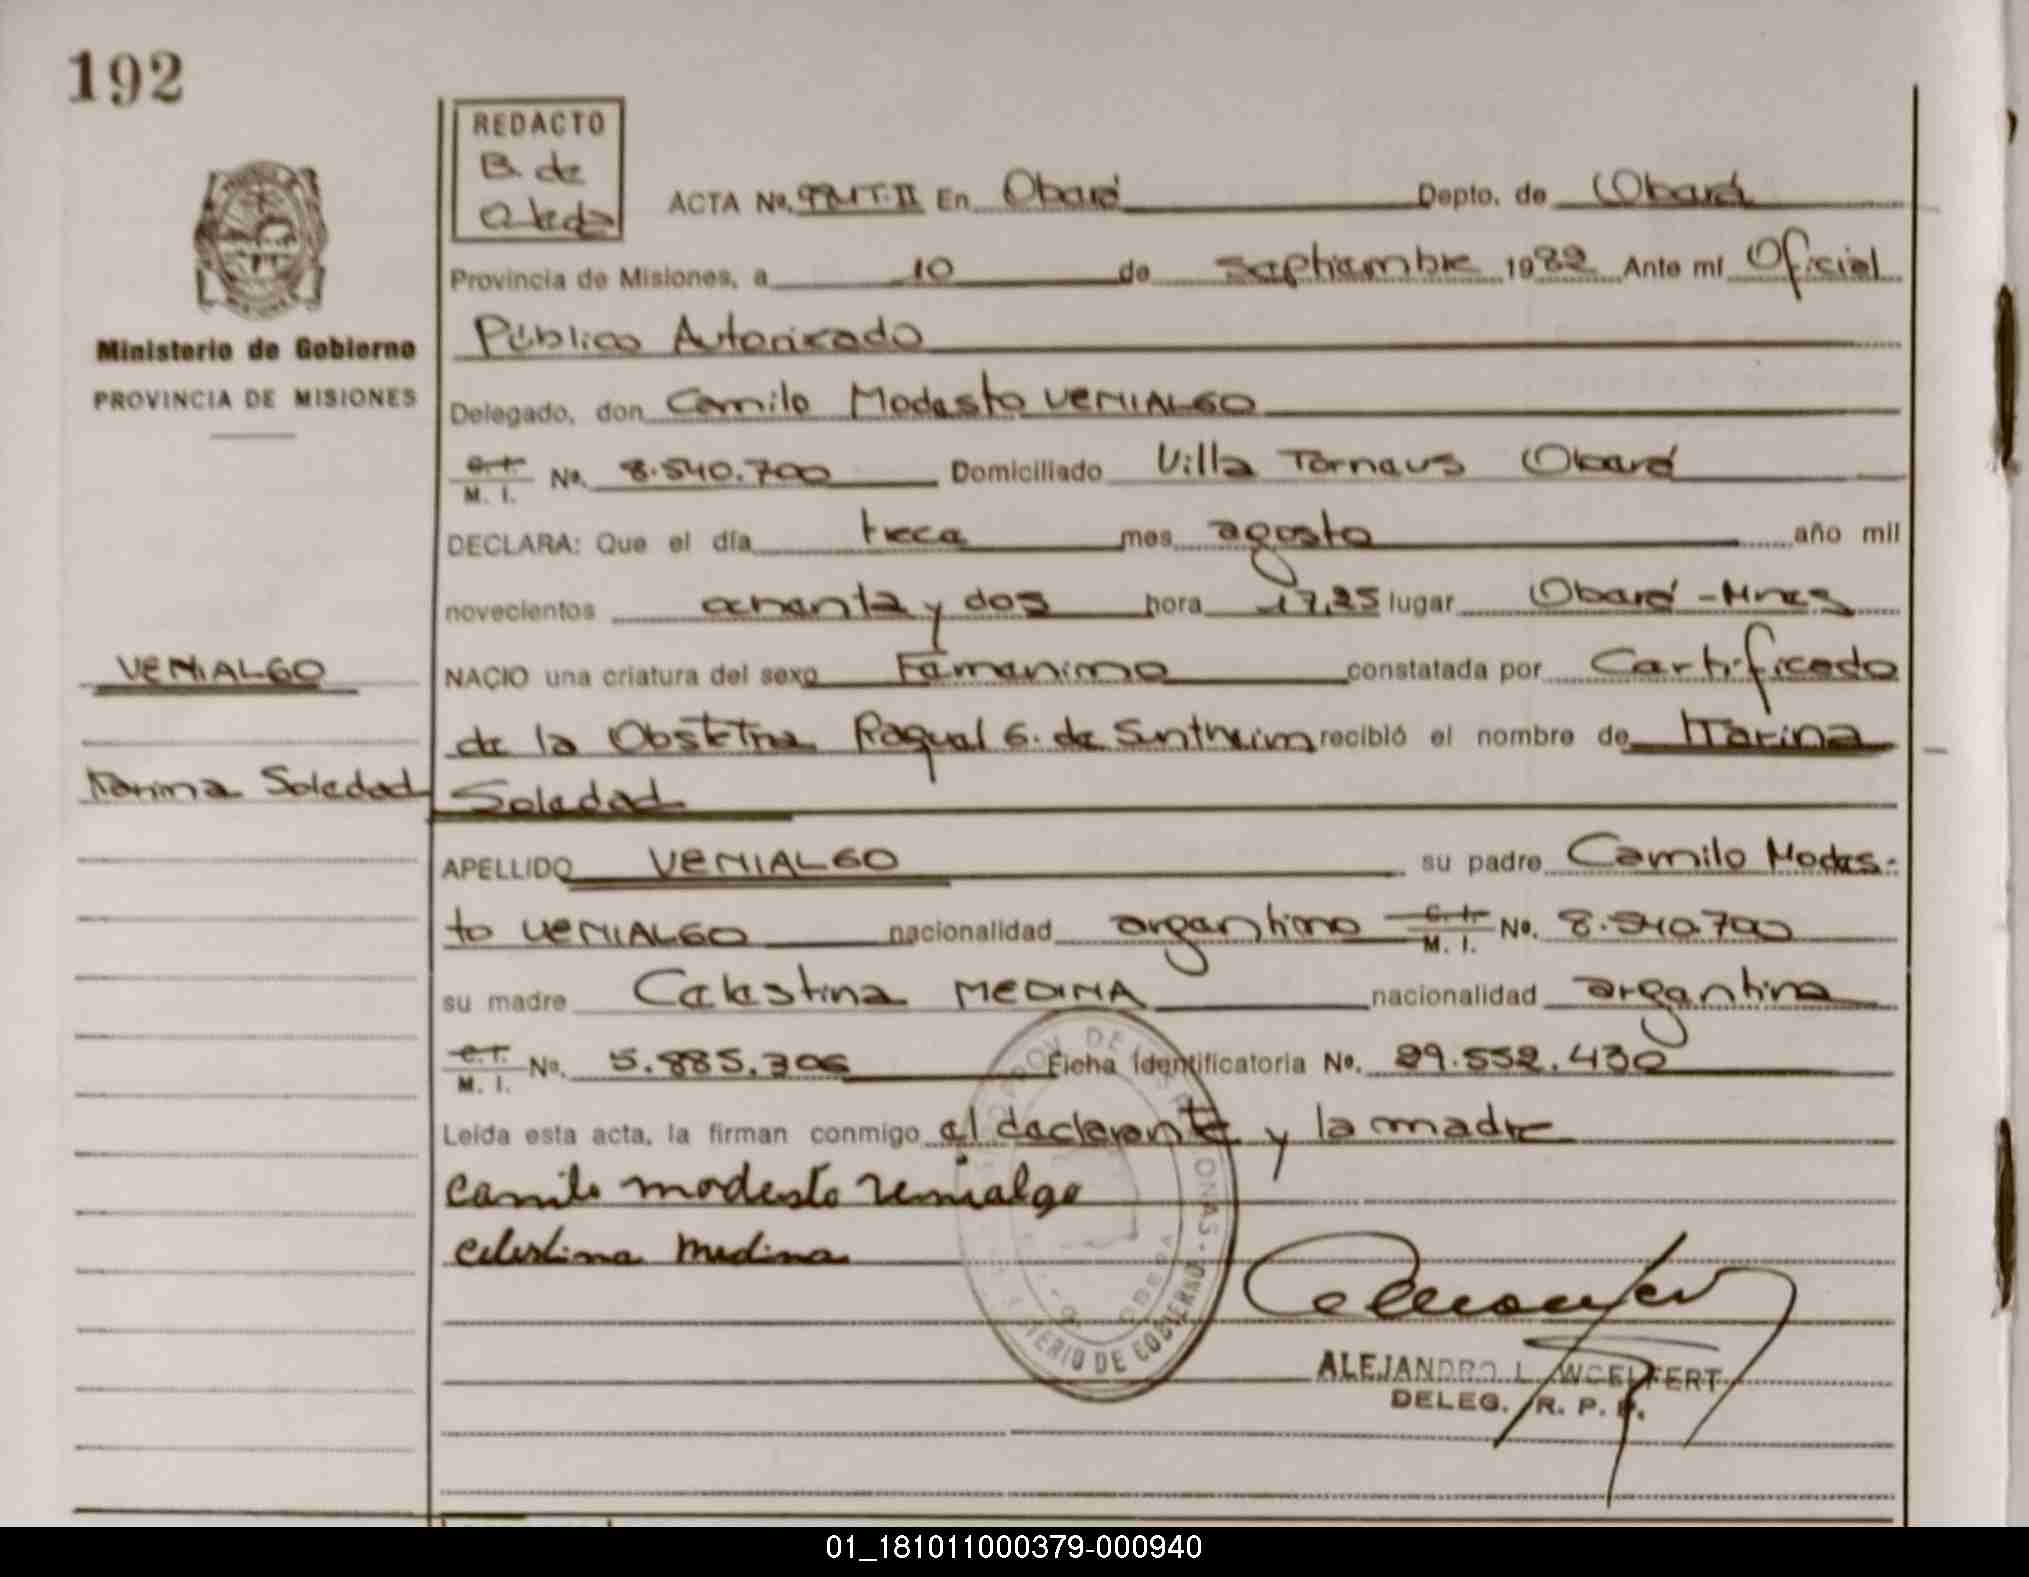 192
REDACTO
B. de
Ministerio de Gobierno
PROVINCIA DE MISIONES
ACTA No. T.II En Oberá Depto. de Oberá
Provincia de Misiones, a 10 de septiembre 1982 Ante mí Oficial
Público Autorizado
Delegado, don Camilo Modesto VENIALGO
C.I. M. I. No. 8.540.700 Domiciliado Villa Tornaus Oberá
DECLARA: Que el día trece mes agosto año mil
novecientos ochenta y dos hora 17,25 lugar Oberá - Mnes
VENIALGO
NACIO una criatura del sexo Femenino constatada por Certificado
de la Obstetra Raquel G. de Suntheim recibió el nombre de Karina
Karina Soledad
Soledad
APELLIDO VENIALGO su padre Camilo Modes-
to VENIALGO nacionalidad argentino C.I. M. I. No. 8.540.700
su madre Celestina MEDINA nacionalidad argentina
C.I. M. I. No. 5.885.306 Ficha Identificatoria No. 29.552.430
Leída esta acta, la firman conmigo el declarante y la madre
camilo modesto venialgo
celestina medina
ALEJANDRO L. WOELFERT
DELEG. R. P. P.
MINISTERIO DE GOBIERNO
01_181011000379-000940